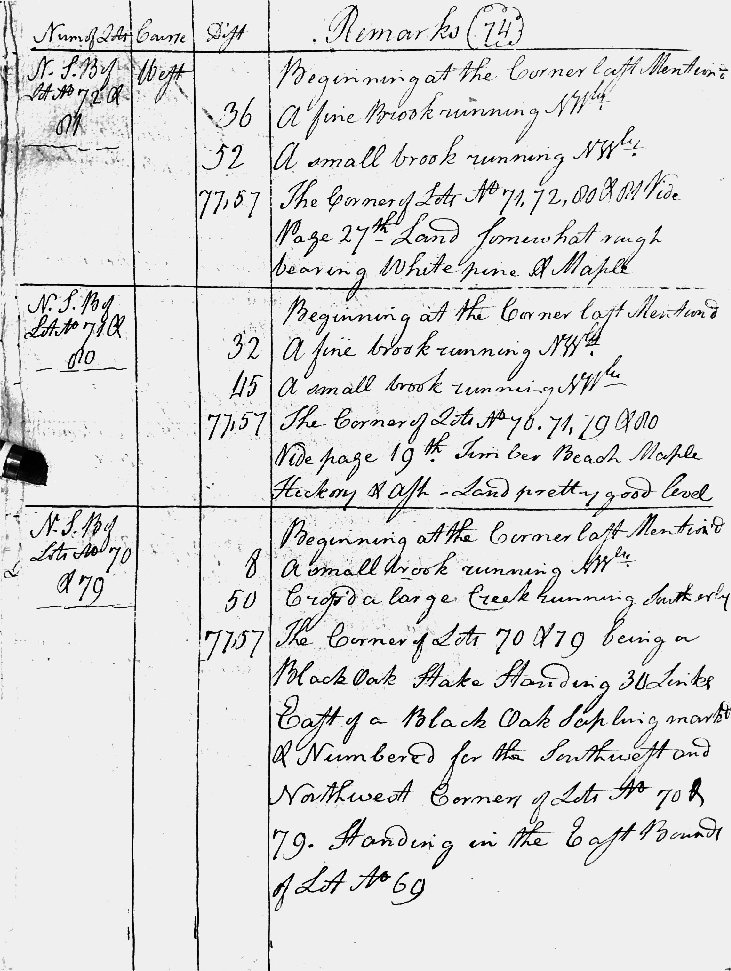 Num of Lots Course Dist Remarks (74)
N. S. By West Beginning at the Corner last Mention'd
Lot No 72 &
81
36 A fine Brook running NWly
52 A small brook running NWly
77,57 The Corner of Lots No 71, 72, 80 & 81 Vide
Page 27th Land somewhat rough
bearing White pine & Maple
N. S. By Beginning at the Corner last Mention'd
Lot No 71 &
80
32 A fine brook running NWly
45 A small brook running NWly
77,57 The Corner of Lots No 70. 71, 79 & 80
Vide page 19th Timber Beach Maple
Hickory & Ash - Land pretty good level
N. S. By Beginning at the Corner last Mention'd
Lots No 70
& 79
8 A small brook running NWly
50 Cross'd a large Creek running Southerly
77,57 The Corner of Lots 70 & 79 being a
Black Oak Stake Standing 30 Links
East of a Black Oak Sapling markd
& Numbered for the Southwest and
Northwest Corners of Lots No 70 &
79. Standing in the East Bounds
of Lot No 69